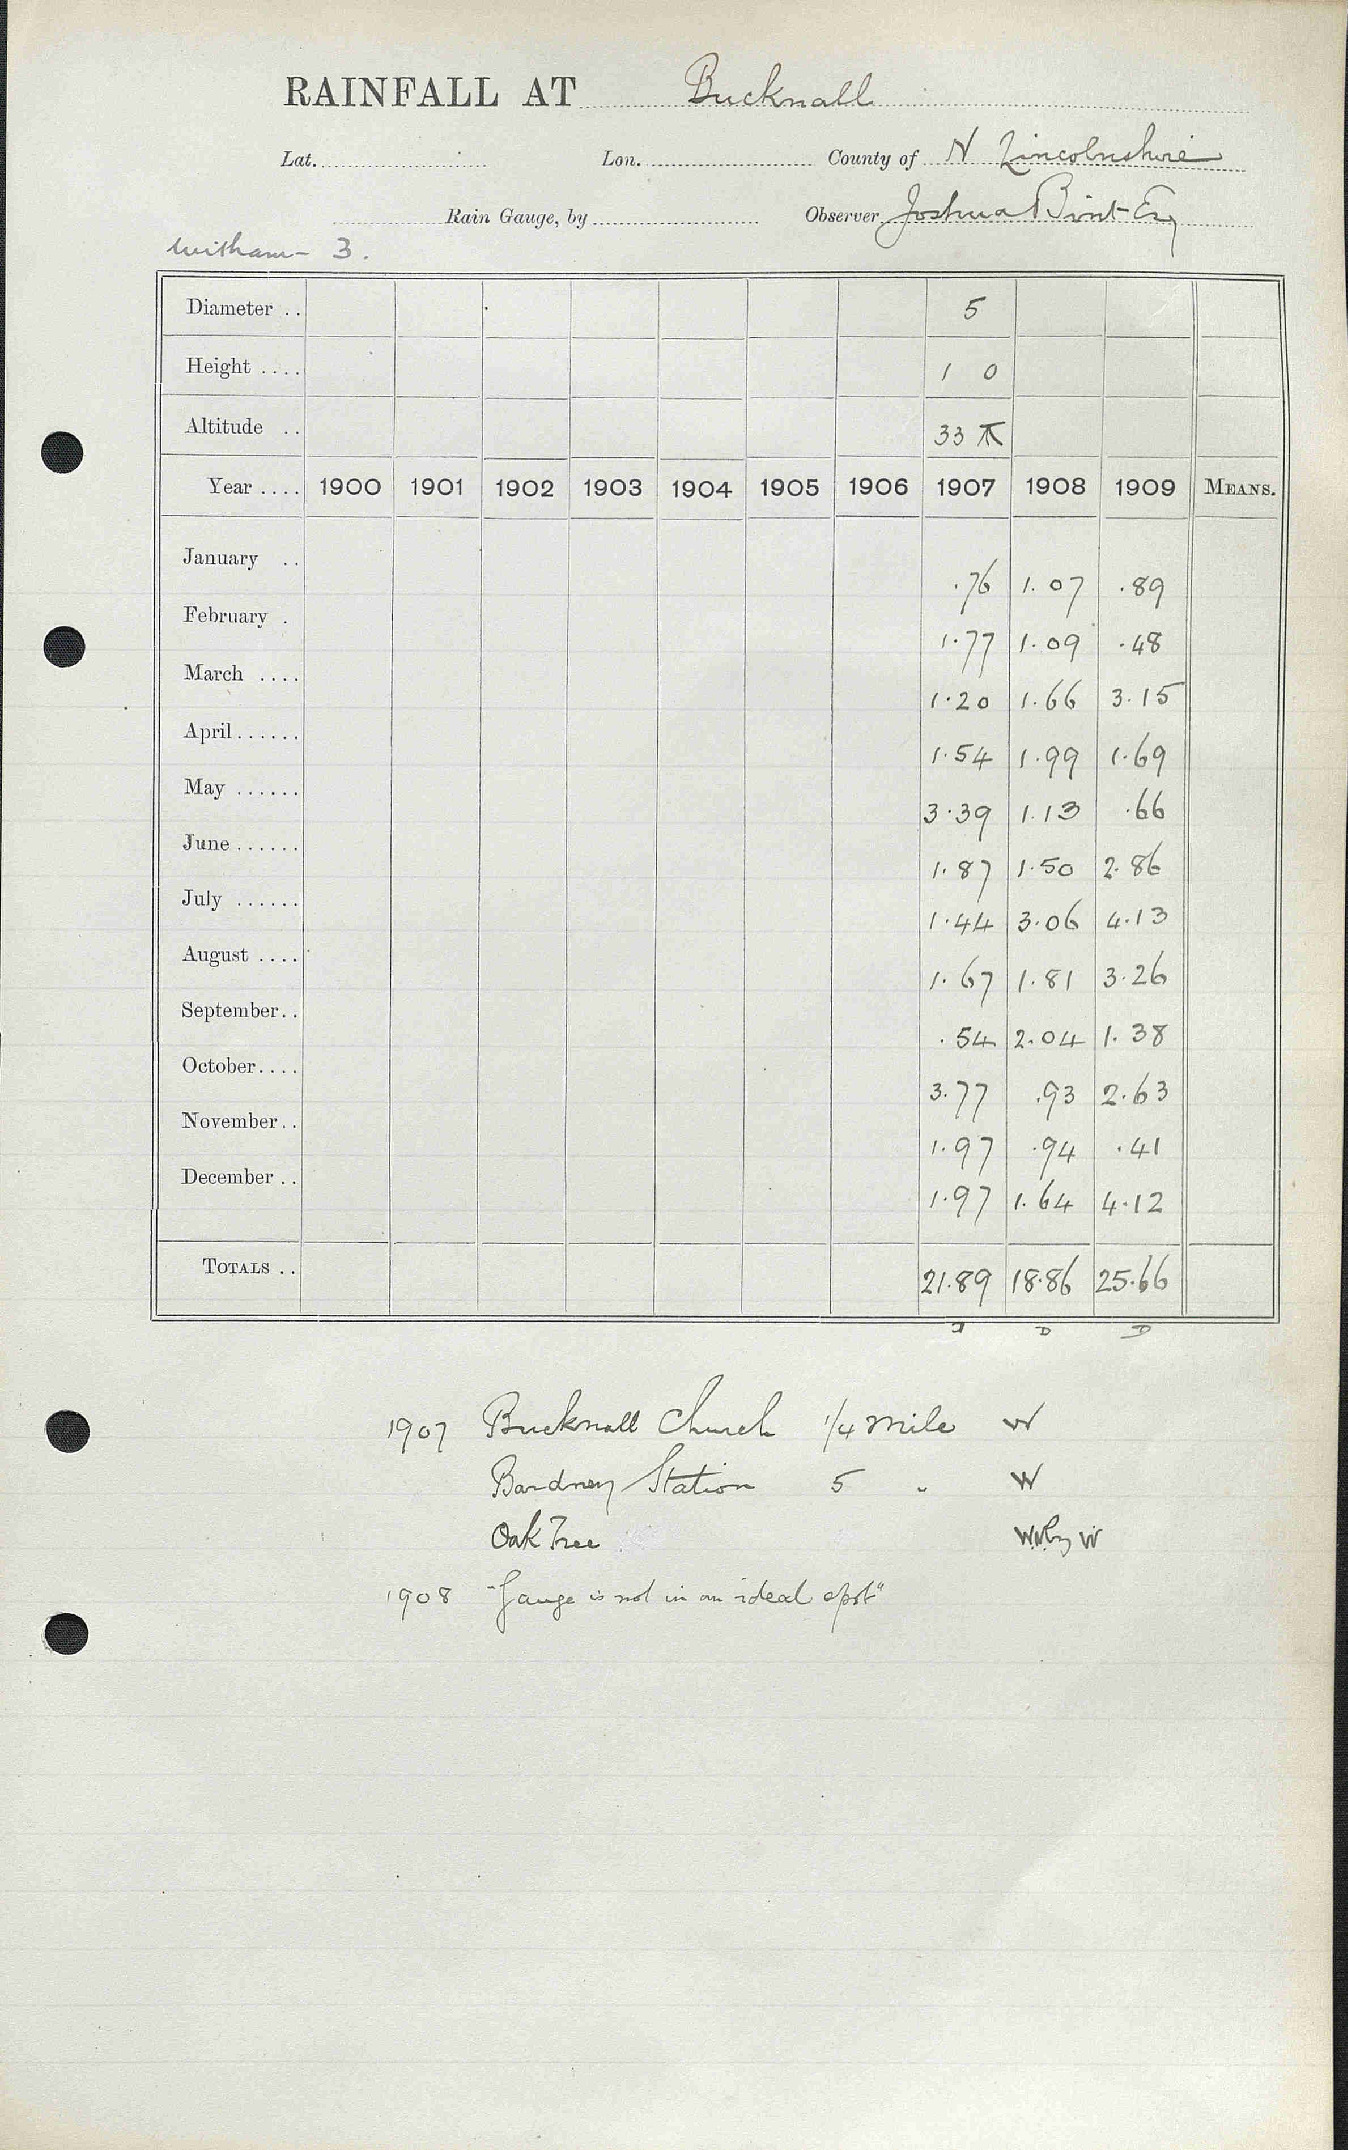 RAINFALL AT Bucknall
Lat. Lon. County of N Lincolnshire
Rain Gauge, by Observer Joshua Bint Esq
Witham 3.
Diameter .. 5
Height .... 1 0
Altitude .. 33
Year .... 1900 1901 1902 1903 1904 1905 1906 1907 1908 1909 MEANS.
January .. .76 1.07 .89
February . 1.77 1.09 .48
March .... 1.20 1.66 3.15
April...... 1.54 1.99 1.69
May ...... 3.39 1.13 .66
June...... 1.87 1.50 2.86
July ...... 1.44 3.06 4.13
August .... 1.67 1.81 3.26
September.. .54 2.04 1.38
October.... 3.77 .93 2.63
November.. 1.97 .94 .41
December .. 1.97 1.64 4.12
TOTALS .. 21.89 18.86 25.66
D D
1907 Bucknall Church 1/4 mile W
Bardney Station 5 " W
Oak Tree W
1908 "Gauge is not in an ideal spot"